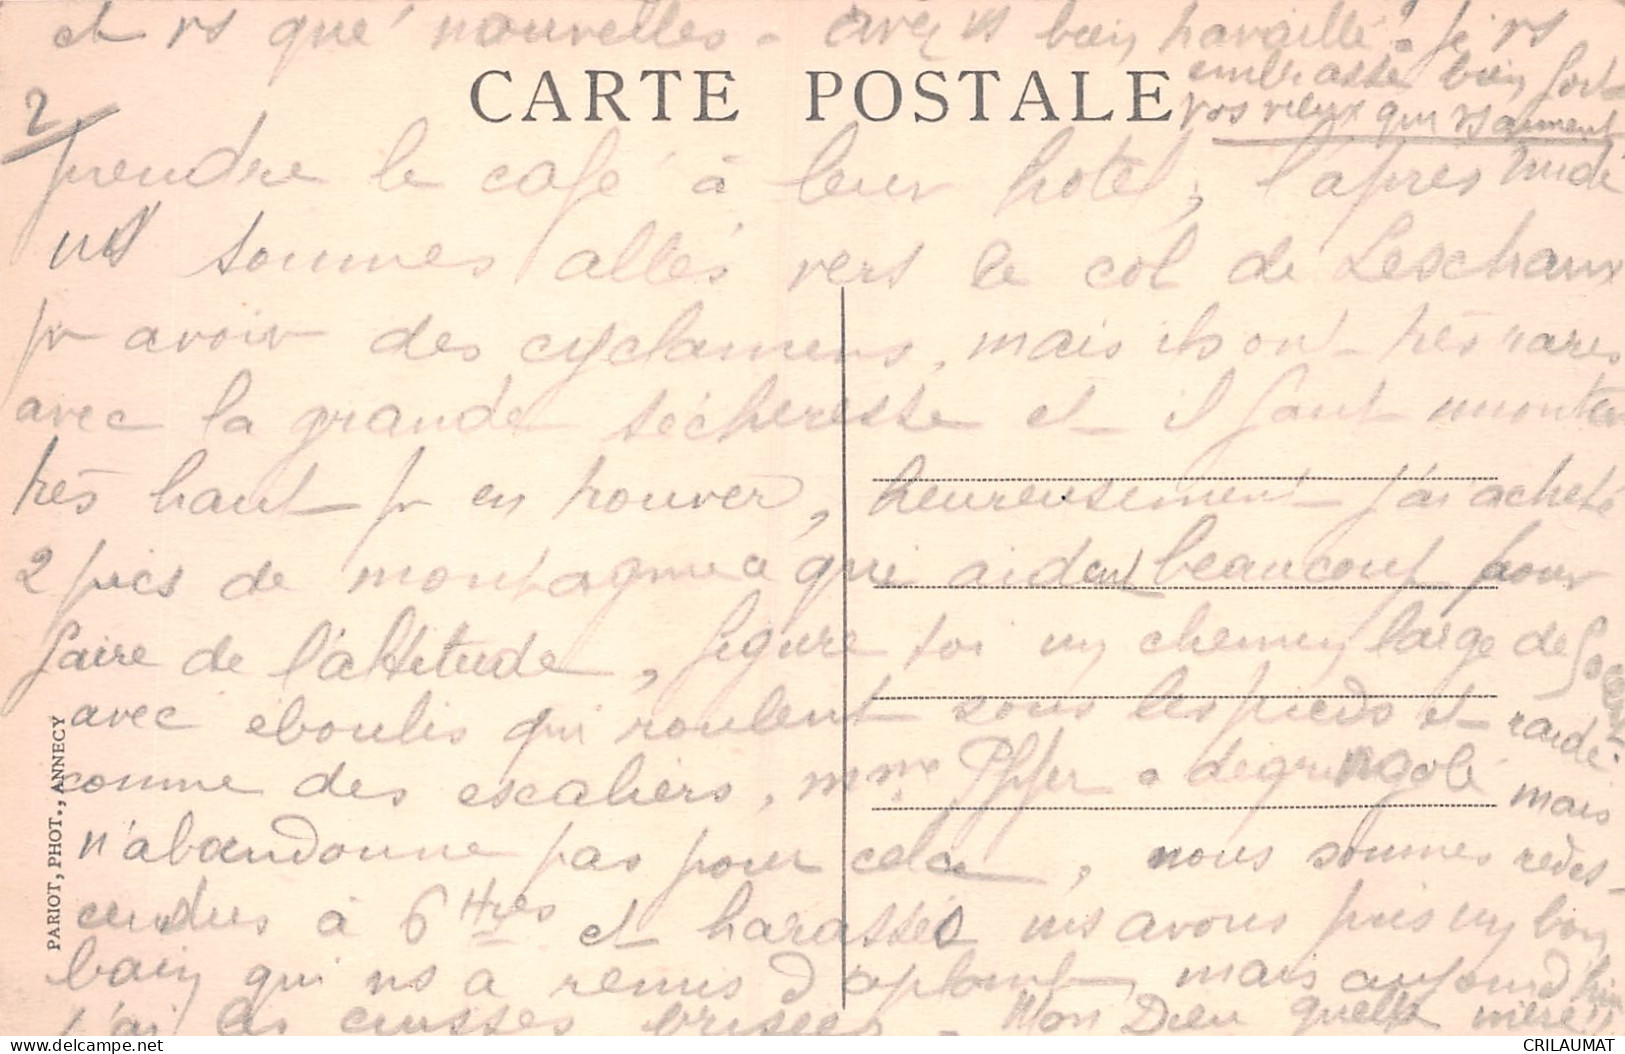 et vs que nouvelles - avez vs bien travaillé? Je vs
embrasse bien fort
vos vieux qui vs aiment
CARTE POSTALE
2
prendre le café à leur hotel, l'après midi
ns sommes allés vers le col de Leschaux
pr avoir des cyclamens, mais ils ont très rares
avec la grande sécheresse et il faut monter
très haut pr en trouver, heureusement j'ai acheté
2 pics de montagne qui aident beaucoup pour
faire de l'altitude, figure toi un chemin large de
avec éboulis qui roulent sous les pieds et raide
comme des escaliers, mme Pffer a degringolé mais
n'abandonne pas pour cela, nous sommes redes-
cendus à 6 hres et harassés ns avons pris un bon
bain qui ns a remis d'aplomb, mais aujourd'hui
j'ai les cuisses brisées - Mon Dieu quelle misère!!
PARIOT, PHOT., ANNECY
CRILAUMAT